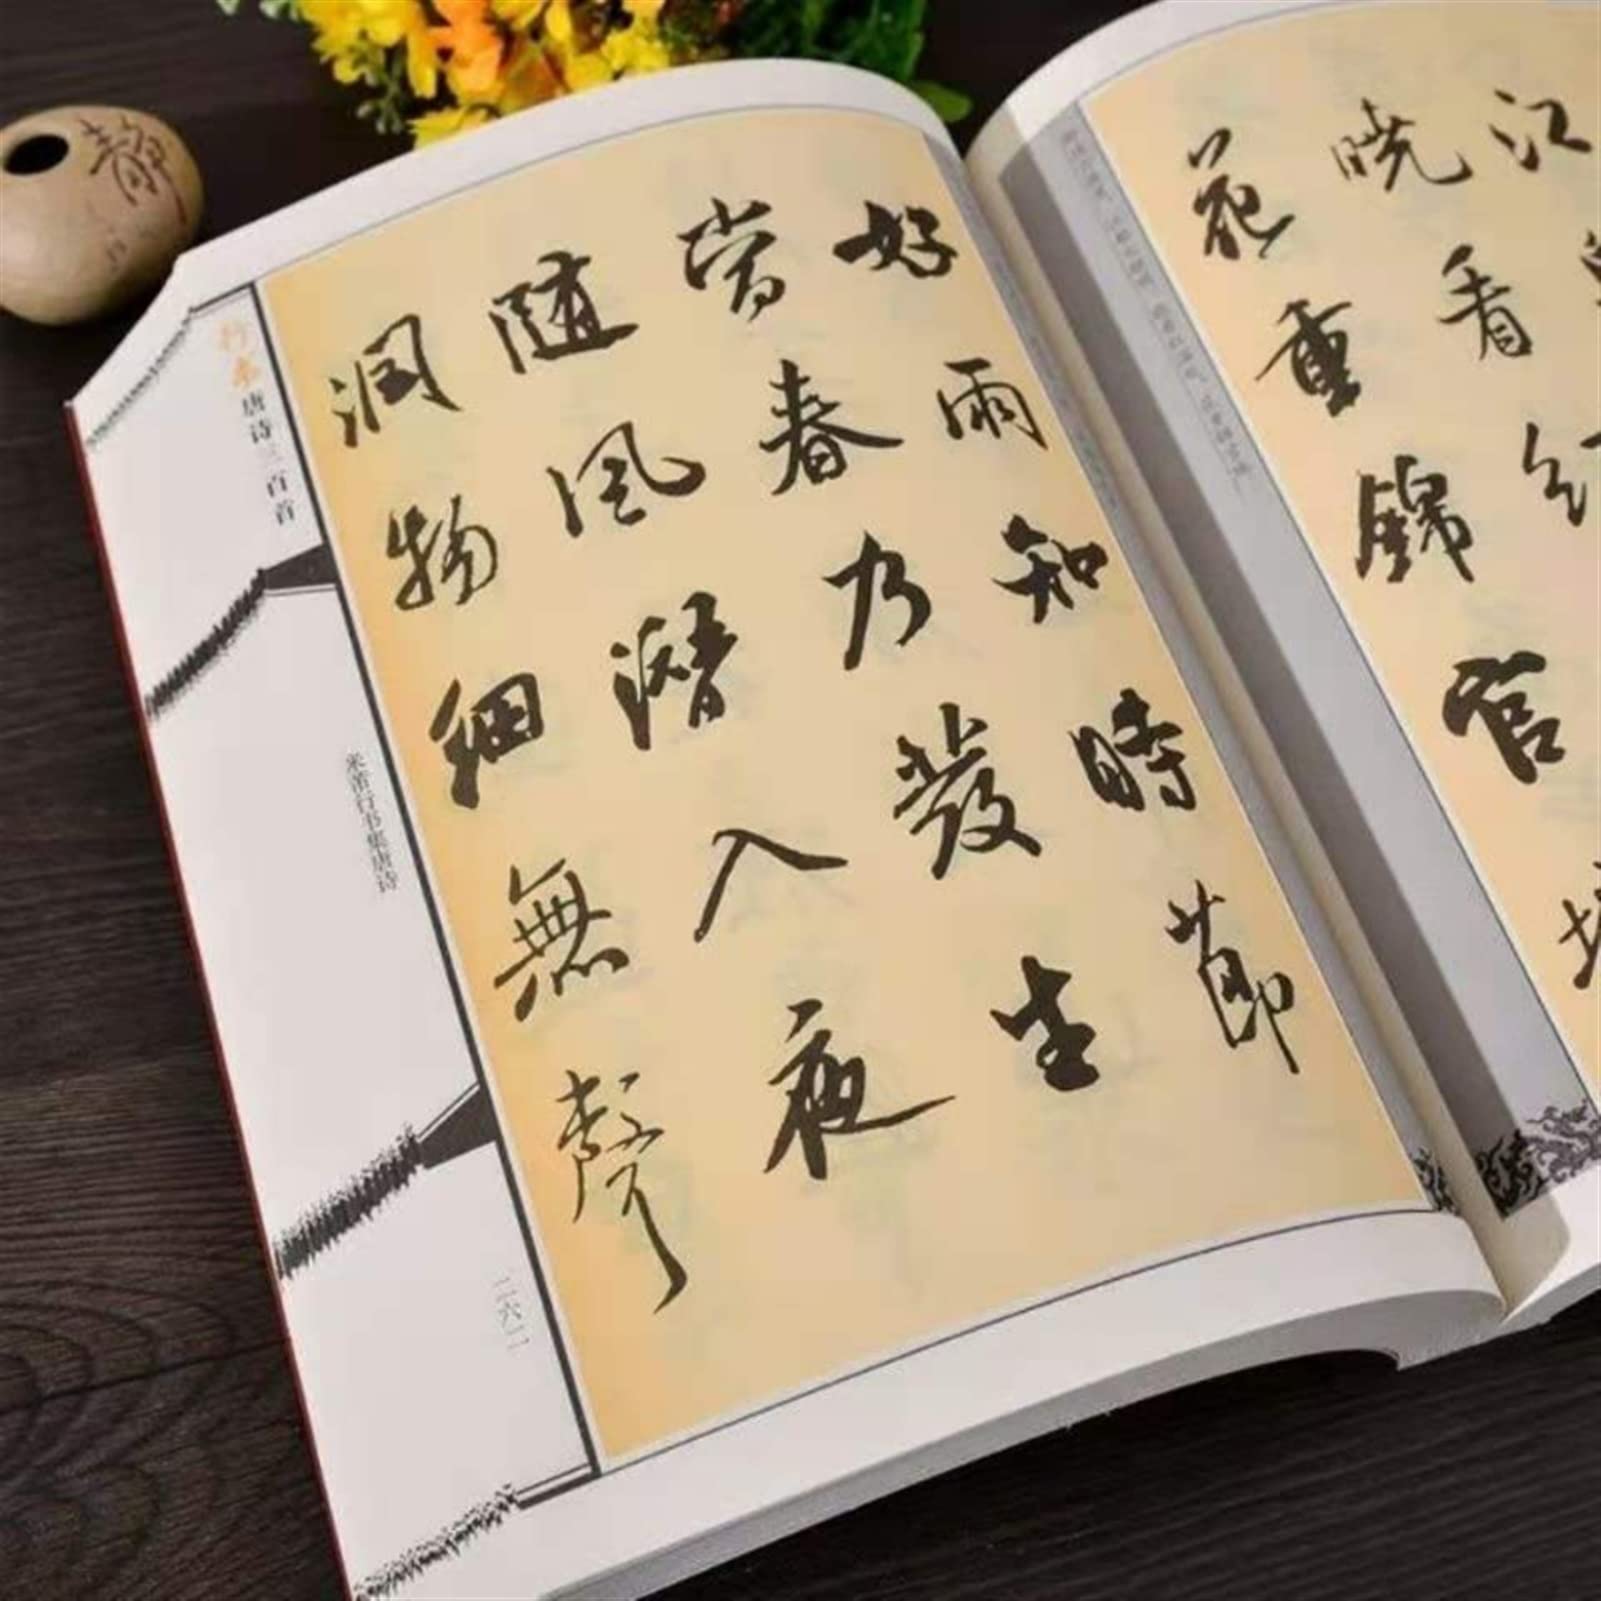 好雨知時節
當春乃發生
隨風潛入夜
潤物細無聲
行書
唐诗三百首
米芾行书集唐诗
二六二
江
曉看紅
花重錦官城
靜